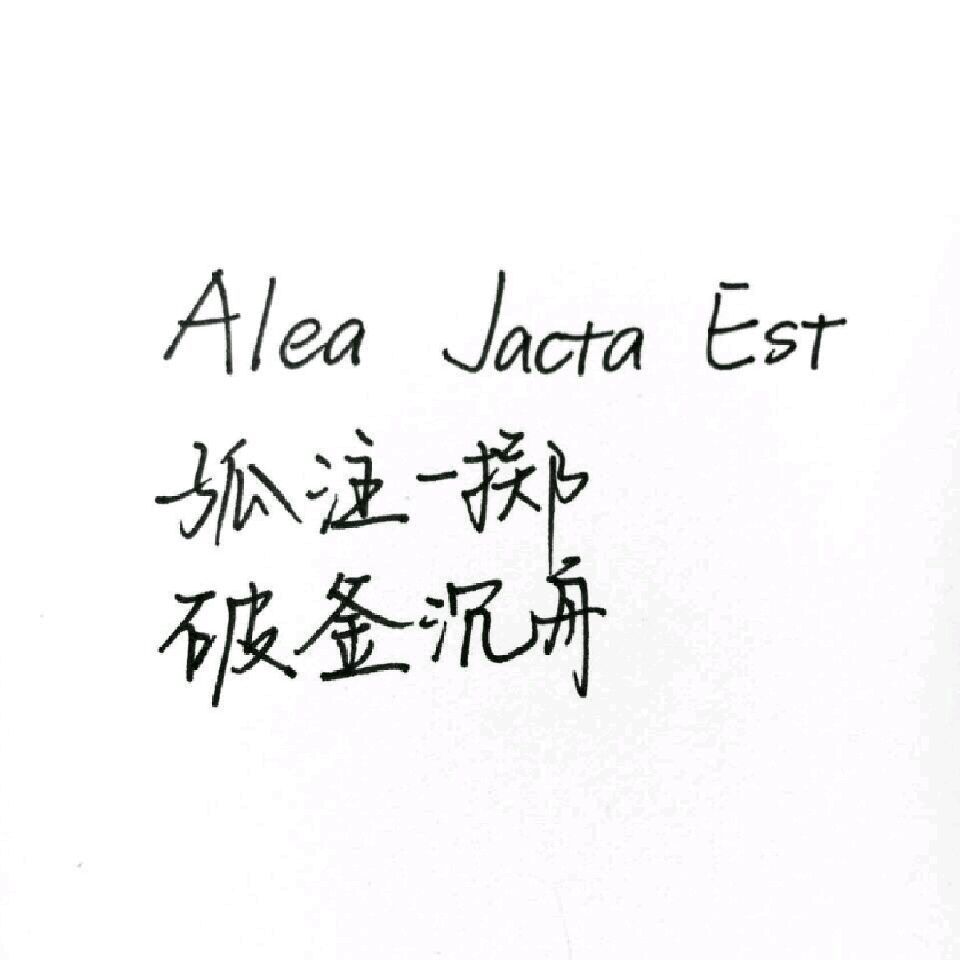 Alea Jacta Est
孤注一掷
破釜沉舟